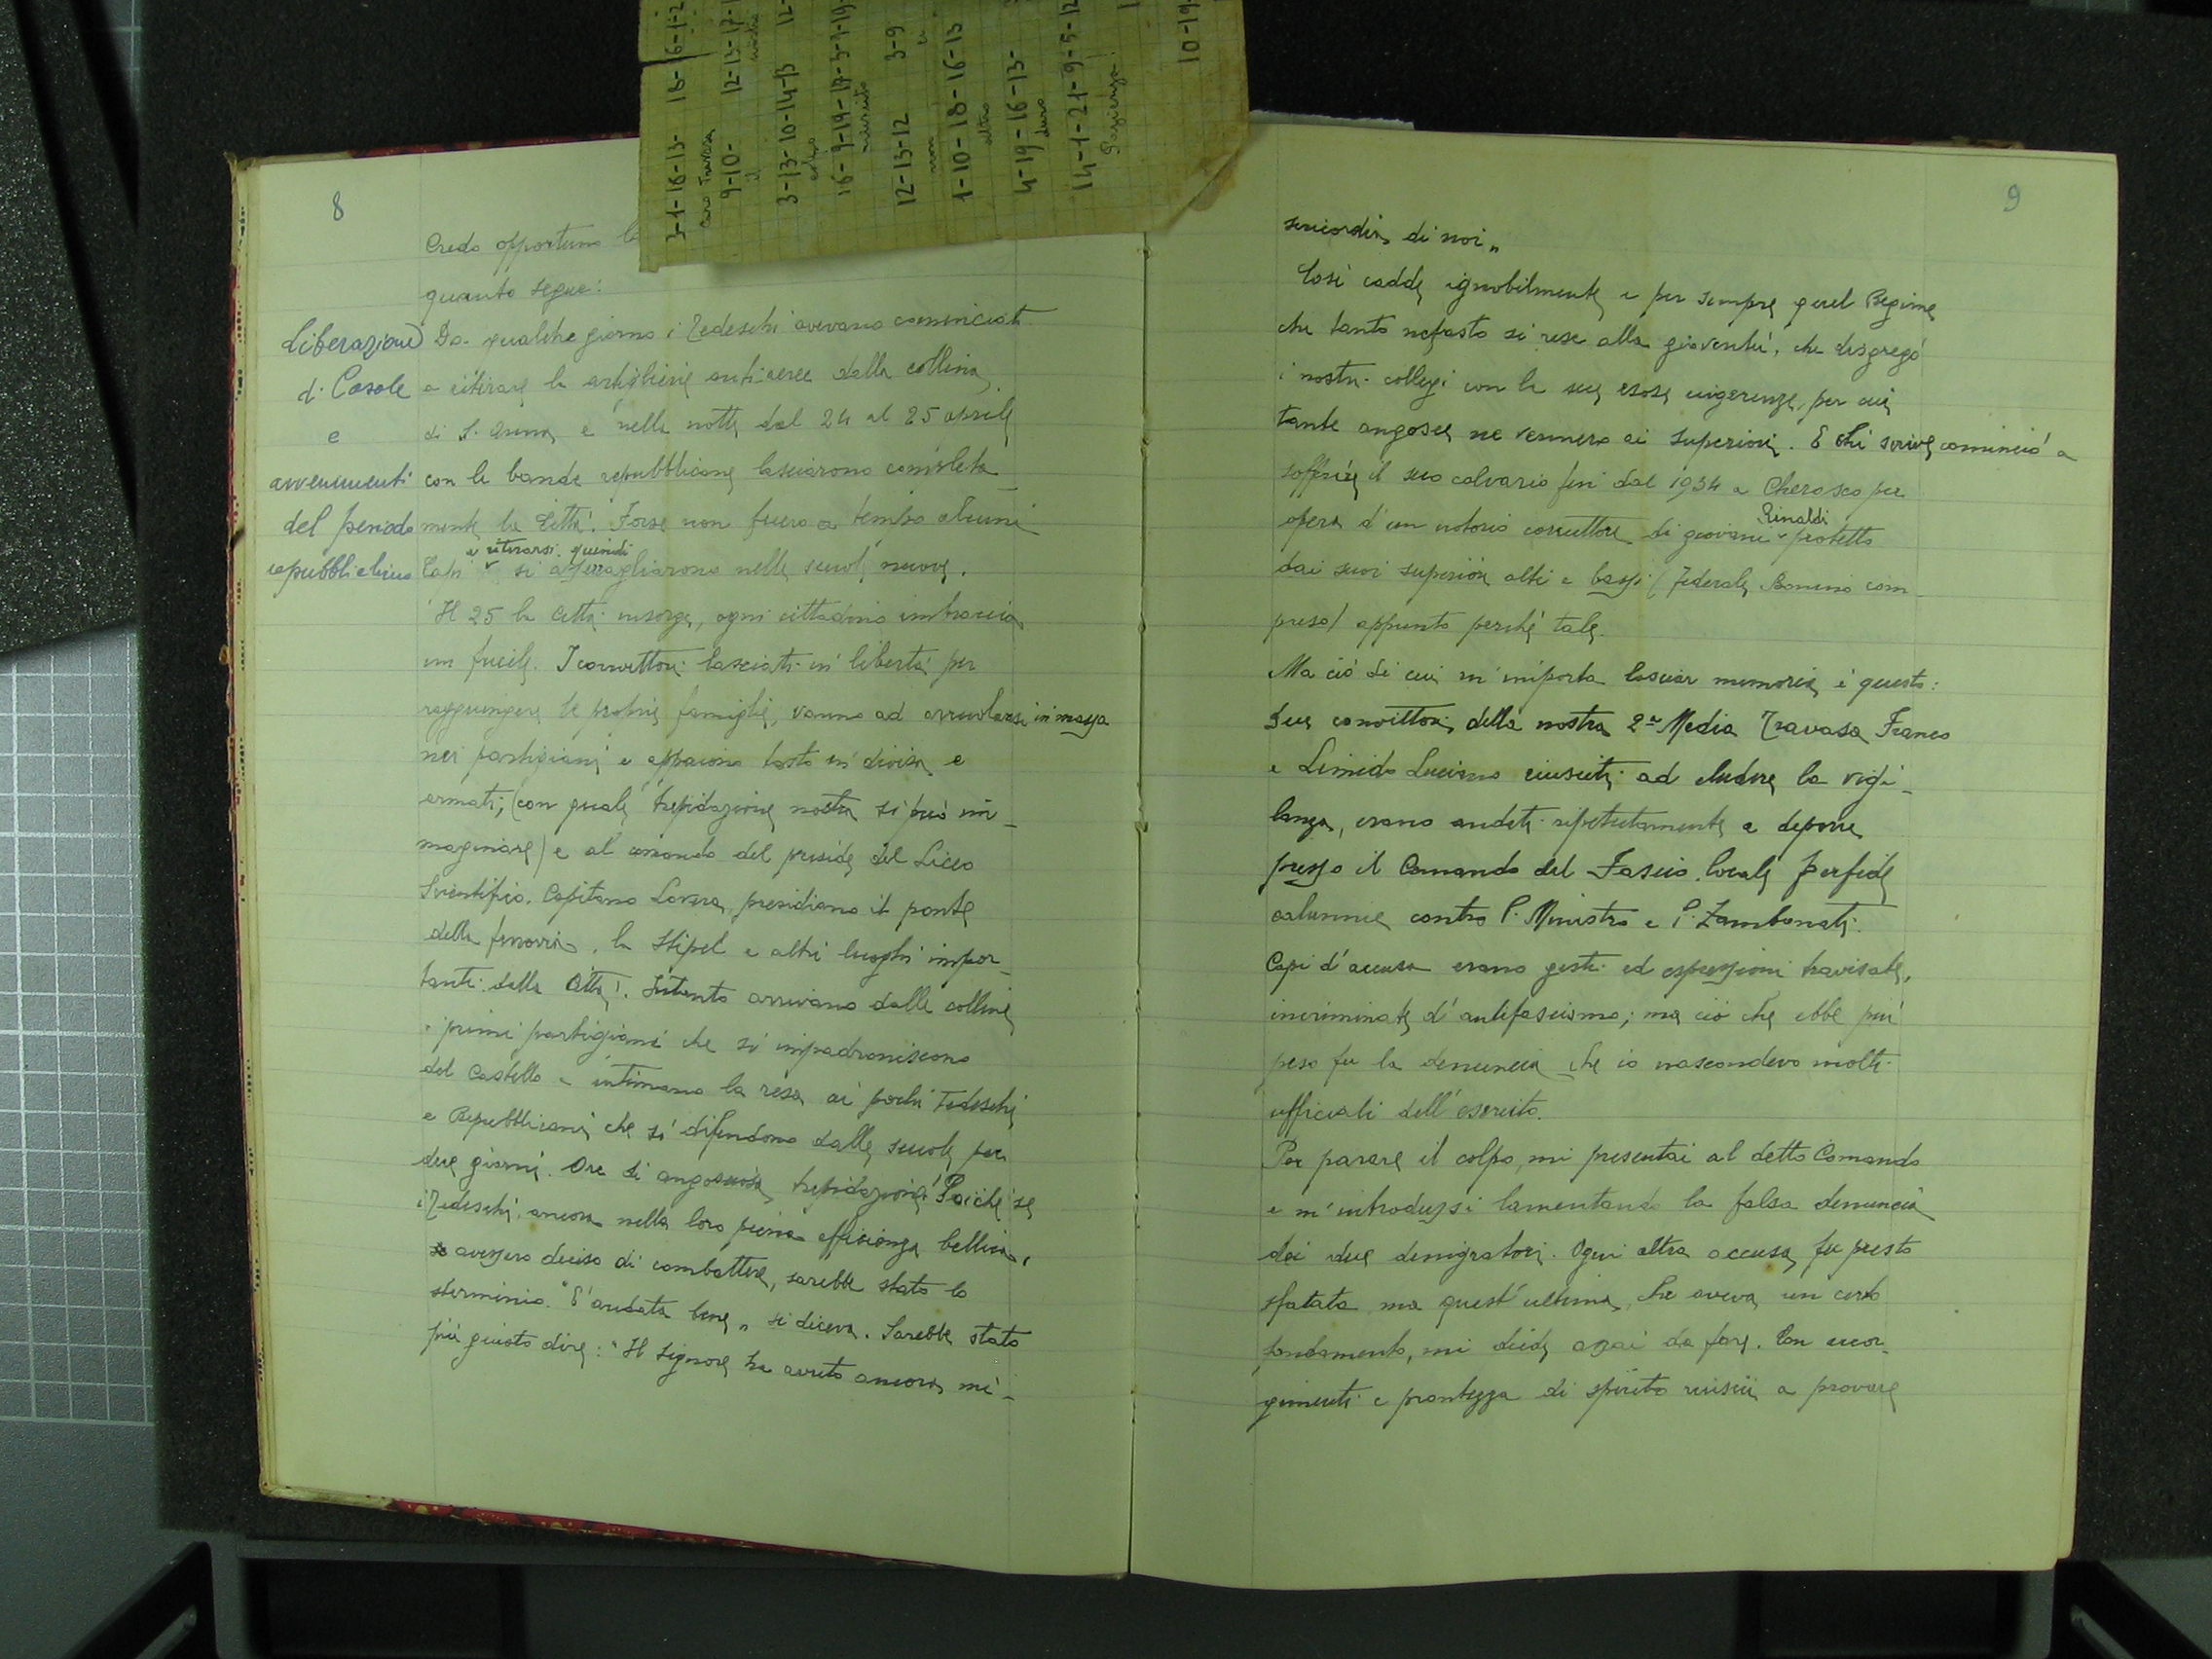 3-1-16-13- 18-16-1-2
Caro Travasa
9-10- 12-13-17-1
il nostro
3-13-10-14-13 12-
colpo
16-9-19-17-3-9-19-
riuscito
12-13-12 3-9
non ci
1-10-18-16-13
altro
4-19-16-13-
duro
14-1-21-9-5-12
Pazienza!
10-19-
8
Credo opportuno
quanto segue:
Liberazione
di Casale
e
avvenimenti
del periodo
repubblichino
Da qualche giorno i Tedeschi avevano cominciato
a ritirare le artiglierie antiaeree dalla collina
di S. Anna e nella notte dal 24 al 25 aprile
con le bande repubblicane lasciarono completa-
mente la Città. Forse non fecero a tempo alcuni
a ritirarsi quindi
Capi si asserragliarono nelle scuole nuove.
Il 25 la Città insorge, ogni cittadino imbraccia
un fucile. I convittori lasciati in libertà per
raggiungere le proprie famiglie, vanno ad arruolarsi in massa
nei partigiani e appaiono tosto in divisa e
armati; (con quale trepidazione nostra si può im-
maginare) e al comando del preside del Liceo
Scientifico, Capitano Lavera, presidiano il ponte
della ferrovia, la Stipel e altri luoghi impor-
tanti della Città. Intanto arrivano dalle colline
i primi partigiani che si impadroniscono
del Castello e intimano la resa ai pochi Tedeschi
e Repubblicani che si difendono dalle scuole per
due giorni. Ore di angosciosa trepidazione! Poichè se
i Tedeschi, ancora nella loro piena efficienza bellica,
avessero deciso di combattere, sarebbe stato lo
sterminio. "E' andata bene" si diceva. Sarebbe stato
più giusto dire: "Il Signore ha avuto ancora mi-
9
sericordia di noi"
Così cadde ignobilmente e per sempre quel Regime
che tanto nefasto si rese alla gioventù, che disgregò
i nostri collegi con la sua esosa ingerenza, per cui
tante angosce ne vennero ai Superiori. E chi scrive cominciò a
soffrire il suo calvario fin dal 1934 a Cherasco per
Rinaldi
opera d'un notorio corruttore di giovani protetto
dai suoi superiori alti e bassi (Federale Bonino com-
preso) appunto perchè tale.
Ma ciò di cui m'importa lasciar memoria è questo:
Due convittori della nostra 2ª Media Travasa Franco
e Limido Luciano riusciti ad eludere la vigi-
lanza, erano andati ripetutamente a deporre
presso il Comando del Fascio locale perfide
calunnie contro P. Ministro e P. Zambonati.
Capi d'accusa erano gesti ed espressioni travisate,
incriminate d'antifascismo; ma ciò che ebbe più
peso fu la denuncia che io nascondevo molti
ufficiali dell'esercito.
Per parare il colpo, mi presentai al detto Comando
e m'introdussi lamentando la falsa denuncia
dei due denigratori. Ogni altra accusa fu presto
sfatata ma quest'ultima, che aveva un certo
fondamento, mi diede assai da fare. Con accor-
gimenti e prontezza di spirito riuscii a provare